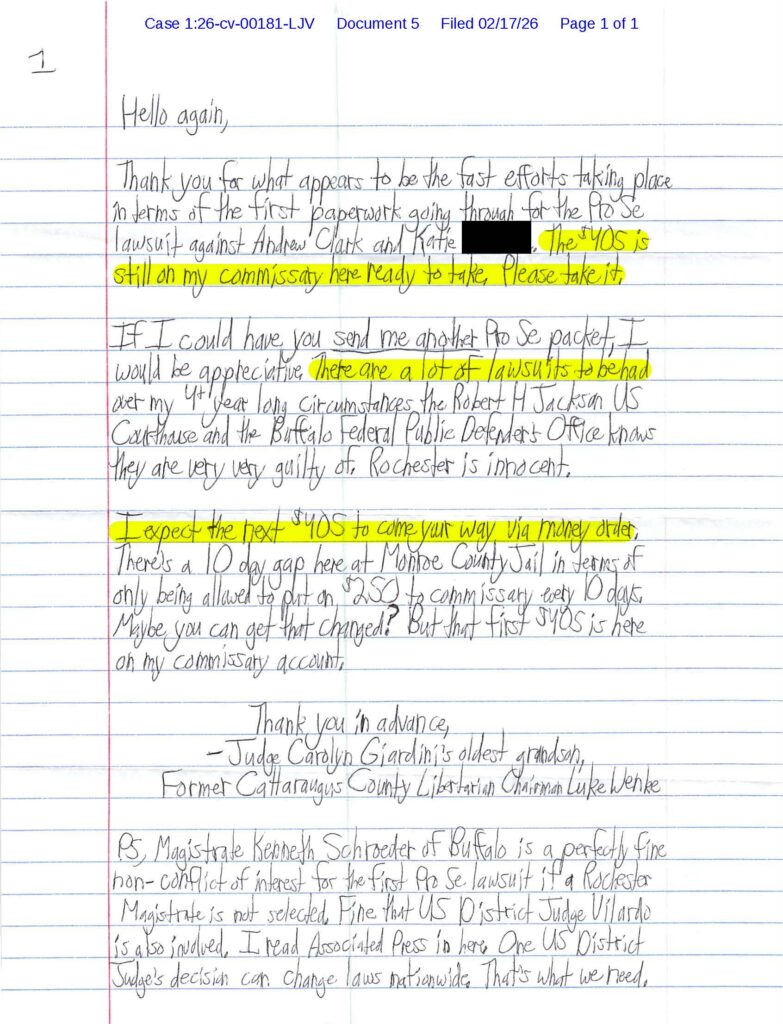 Case 1:26-cv-00181-LJV Document 5 Filed 02/17/26 Page 1 of 1
1
Hello again,
Thank you for what appears to be the fast efforts taking place
in terms of the first paperwork going through for the Pro Se
lawsuit against Andrew Clark and Katie . The $405 is
still on my commissary here ready to take. Please take it.
If I could have you send me another Pro Se packet, I
would be appreciative. There are a lot of lawsuits to be had
over my 4+ year long circumstances the Robert H Jackson US
Courthouse and the Buffalo Federal Public Defender's Office knows
they are very very guilty of. Rochester is innocent.
I expect the next $405 to come your way via money order.
There's a 10 day gap here at Monroe County Jail in terms of
only being allowed to put on $250 to commissary every 10 days.
Maybe you can get that changed? But that first $405 is here
on my commissary account.
Thank you in advance,
- Judge Carolyn Giardini's oldest grandson,
Former Cattaraugus County Libertarian Chairman Luke Wenke
PS, Magistrate Kenneth Schroeder of Buffalo is a perfectly fine
non-conflict of interest for the first Pro Se lawsuit if a Rochester
Magistrate is not selected. Fine that US District Judge Vilardo
is also involved. I read Associated Press in here. One US District
Judge's decision can change laws nationwide. That's what we need.